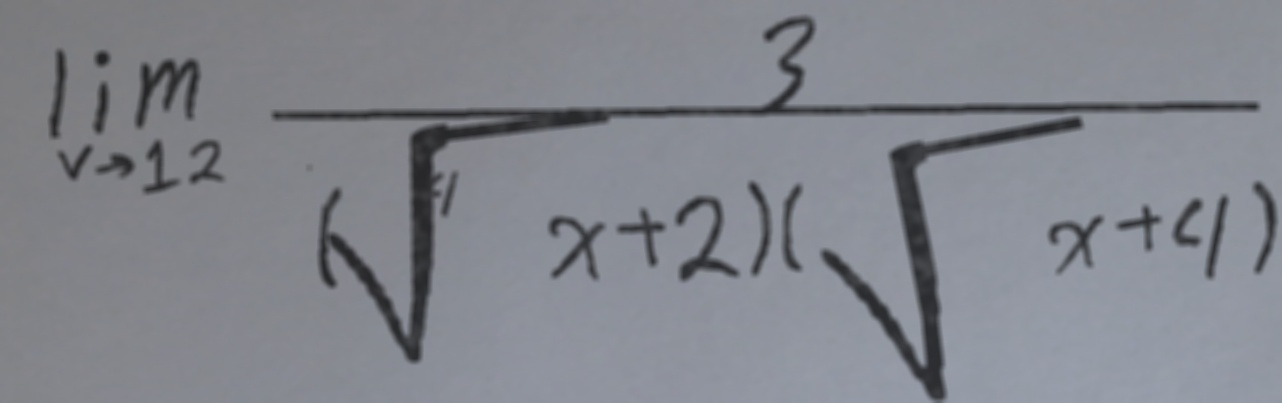 lim v→12 3 / (√ x+2)(√ x+4)